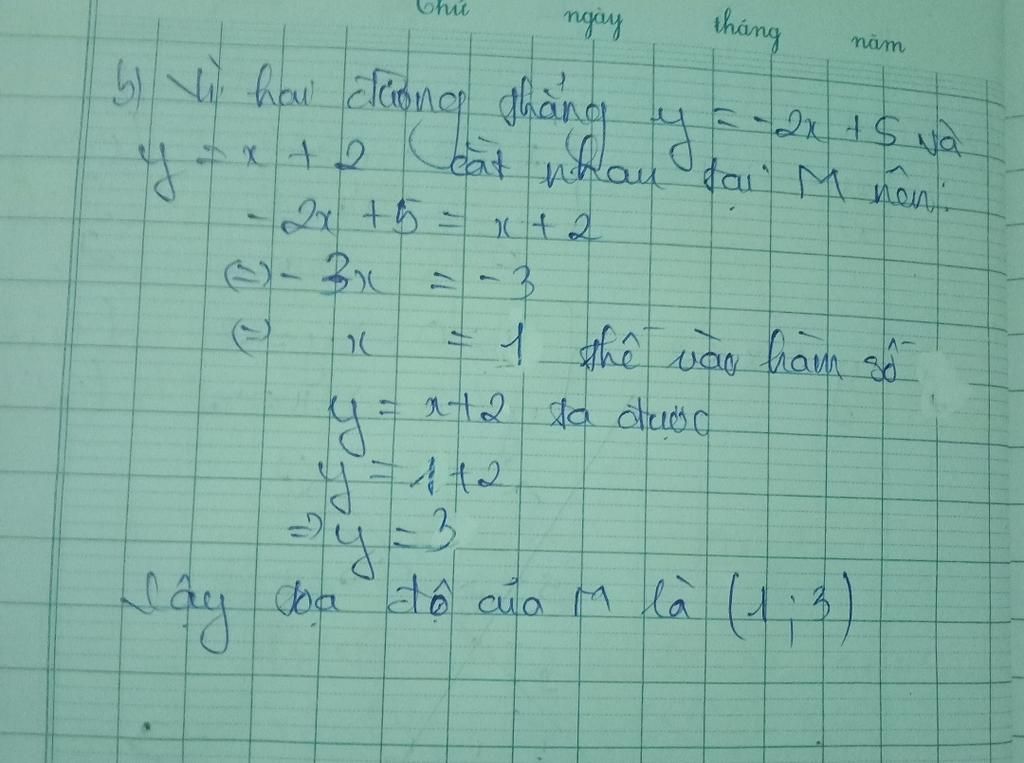 Thứ ngày tháng năm
b) Vì hai đường thẳng y = -2x + 5 và
y = x + 2 cắt nhau tại M nên:
- 2x + 5 = x + 2
(=) - 3x = - 3
(=) x = 1 thế vào hàm số
y = x + 2 ta được
y = 1 + 2
=> y = 3
Vậy tọa độ của M là (1; 3)